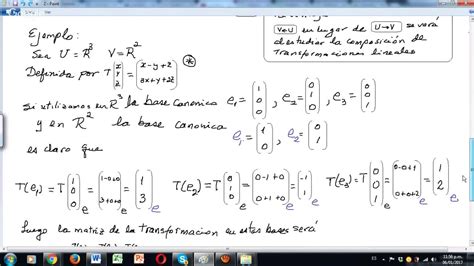 Ejemplo:
Sea U=R³ V=R²
Definida por T(x y z) = (x-y+z 3x+y+2z) *
V←U en lugar de U→V se verá
al estudiar la composición de
Transformaciones lineales
Si utilizamos en R³ la base canonica e₁=(1 0 0), e₂=(0 1 0), e₃=(0 0 1)
y en R² la base canonica e₁=(1 0) e₂=(0 1)
es claro que
T(e₁)=T(1 0 0)=(1-0+0 3+0+0)=(1 3)e T(e₂)=T(0 1 0)=(0-1+0 0+1+0)=(-1 1)e T(e₃)=T(0 0 1)e=(0-0+1 0+0+2)e=(1 2)e
Luego la matriz de la transformacion en estas bases será
ES